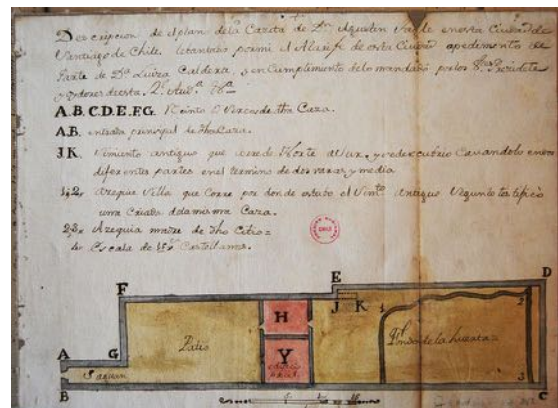 Descripcion del plan de la Cazeta de Dn. Agustin en esta Ciudad de
Santiago de Chile levantado por mi el Alarife de esta Ciudad a pedimento de
Parte de Da. Luiza Caldera, y en Cumplimiento de lo mandado por los Sres. Precidente
y oydores de esta Rl. Auda.
A.B.C.D.E.F.G. Recinto de dha Caza.
A.B. entrada principal de dha Caza.
J.K. Simiento antiguo que corre de Norte a Sur, y se descubrio Cavandolo en
diferentes partes en el termino de dos varas y media
1,2, Azequia que Corre por donde estubo el Simto. antiguo segun lo testifico
una Criada de la misma Caza.
2,3, Azequia madre de dho Citio
Escala de Castellanas.
F
E
D
J K
1
2
H
A
G
Patio
Y
Fondo de la huerta
Saguan
3
B
C